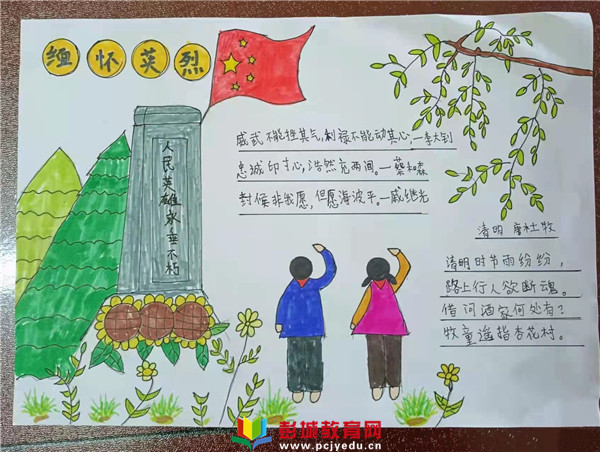 缅怀英烈
人民英雄永垂不朽
威武不能挫其气,利禄不能动其心—李大钊
忠诚印寸心,浩然充两间。—蔡和森
封候非我愿,但愿海波平。—戚继光
清明 唐杜牧
清明时节雨纷纷,
路上行人欲断魂。
借问酒家何处有?
牧童遥指杏花村。
彭城教育网
www.pcjyedu.cn